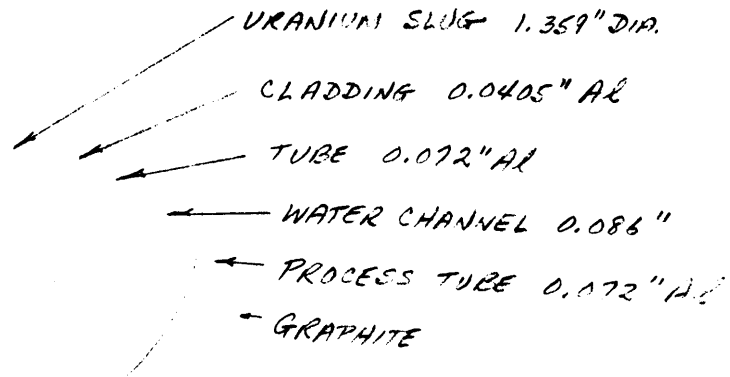 URANIUM SLUG 1.359" DIA.
CLADDING 0.0405" Al
TUBE 0.072" Al
WATER CHANNEL 0.086"
PROCESS TUBE 0.072" Al
GRAPHITE